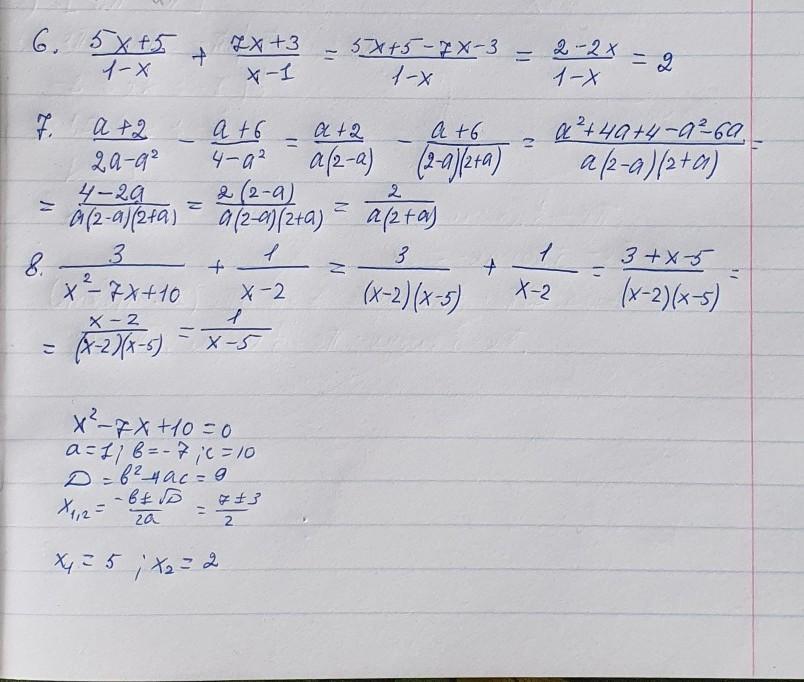 6. (5x+5)/(1-x) + (7x+3)/(x-1) = (5x+5-7x-3)/(1-x) = (2-2x)/(1-x) = 2
7. (a+2)/(2a-a²) - (a+6)/(4-a²) = (a+2)/(a(2-a)) - (a+6)/((2-a)(2+a)) = (a²+4a+4-a²-6a)/(a(2-a)(2+a)) =
= (4-2a)/(a(2-a)(2+a)) = (2(2-a))/(a(2-a)(2+a)) = 2/(a(2+a))
8. 3/(x²-7x+10) + 1/(x-2) = 3/((x-2)(x-5)) + 1/(x-2) = (3+x-5)/((x-2)(x-5)) =
= (x-2)/((x-2)(x-5)) = 1/(x-5)
x²-7x+10=0
a=1; b=-7; c=10
D=b²-4ac=9
x₁,₂ = (-b±√D)/(2a) = (7±3)/2
x₁=5; x₂=2